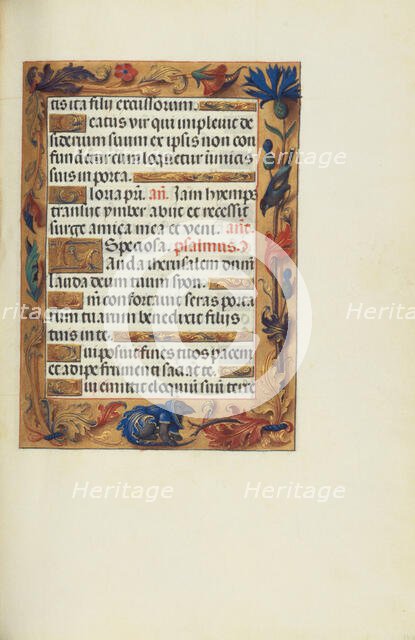 tis ita filii excussorum.
Beatus vir qui impleuit de
siderium suum ex ipsis non con
fundetur cum loquetur inimicis
suis in porta.
Gloria pri. añ. Jam hyemps
transiit ymber abiit et recessit
surge amica mea et veni. añt.
Speciosa. psalmus.
Lauda iherusalem dnm
lauda deum tuum syon.
Qm confortauit seras porta
rum tuarum benedixit filiis
tuis in te.
Qui posuit fines tuos pacem
et adipe frumenti saciat te.
Qui emittit eloquium suum terre
Heritage
Heritage
Heritage
Heritage
Heritage
Heritage
Heritage
Heritage